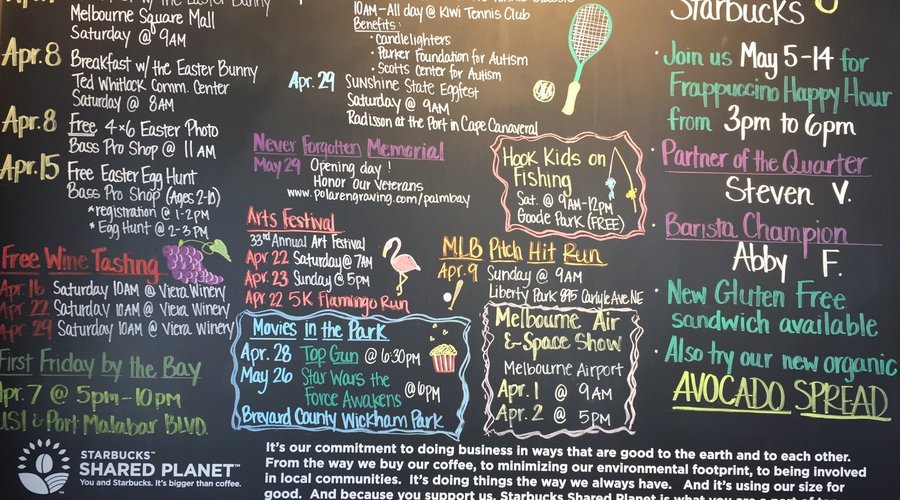 Melbourne Square Mall
Saturday @ 9AM
Apr. 8 Breakfast w/ the Easter Bunny
Ted Whitlock Comm. Center
Saturday @ 8AM
Apr. 8 Free 4x6 Easter Photo
Bass Pro Shop @ 11 AM
Apr. 15 Free Easter Egg Hunt
Bass Pro Shop (Ages 2-10)
*registration @ 1-2PM
*Egg Hunt @ 2-3 PM
Free Wine Tasting
Apr. 16 Saturday 10AM @ Viera Winery
Apr. 22 Saturday 10AM @ Viera Winery
Apr. 29 Saturday 10AM @ Viera Winery
First Friday by the Bay
Apr. 7 @ 5pm-10pm
US1 & Port Malabar BLVD.
10AM-All day @ Kiwi Tennis Club
Benefits:
• Candlelighters
• Parker Foundation for Autism
• Scotts Center for Autism
Apr. 29 Sunshine State Eggfest
Saturday @ 9AM
Radisson at the Port in Cape Canaveral
Never Forgotten Memorial
May 29 Opening day!
Honor Our Veterans
www.polarengraving.com/palmbay
Hook Kids on
Fishing
Sat. @ 9AM-12PM
Goode Park (FREE)
Arts Festival
33rd Annual Art Festival
Apr 22 Saturday @ 7AM
Apr. 23 Sunday @ 5pm
Apr 22 5K Flamingo Run
MLB Pitch Hit Run
Apr. 9 Sunday @ 9AM
Liberty Park 895 Carlyle Ave NE
Movies in the Park
Apr. 28 Top Gun @ 6:30pm
May 26 Star Wars the
Force Awakens @ 6pm
Brevard County Wickham Park
Melbourne Air
& Space Show
Melbourne Airport
Apr. 1 @ 9AM
Apr. 2 @ 5PM
Starbucks
• Join us May 5-14 for
Frappuccino Happy Hour
from 3pm to 6pm
• Partner of the Quarter
Steven V.
• Barista Champion
Abby F.
• New Gluten Free
sandwich available
• Also try our new organic
AVOCADO SPREAD
STARBUCKS™
SHARED PLANET™
You and Starbucks. It's bigger than coffee.
It's our commitment to doing business in ways that are good to the earth and to each other.
From the way we buy our coffee, to minimizing our environmental footprint, to being involved
in local communities. It's doing things the way we always have. And it's using our size for
good. And because you support us, Starbucks Shared Planet is what you are a part of too